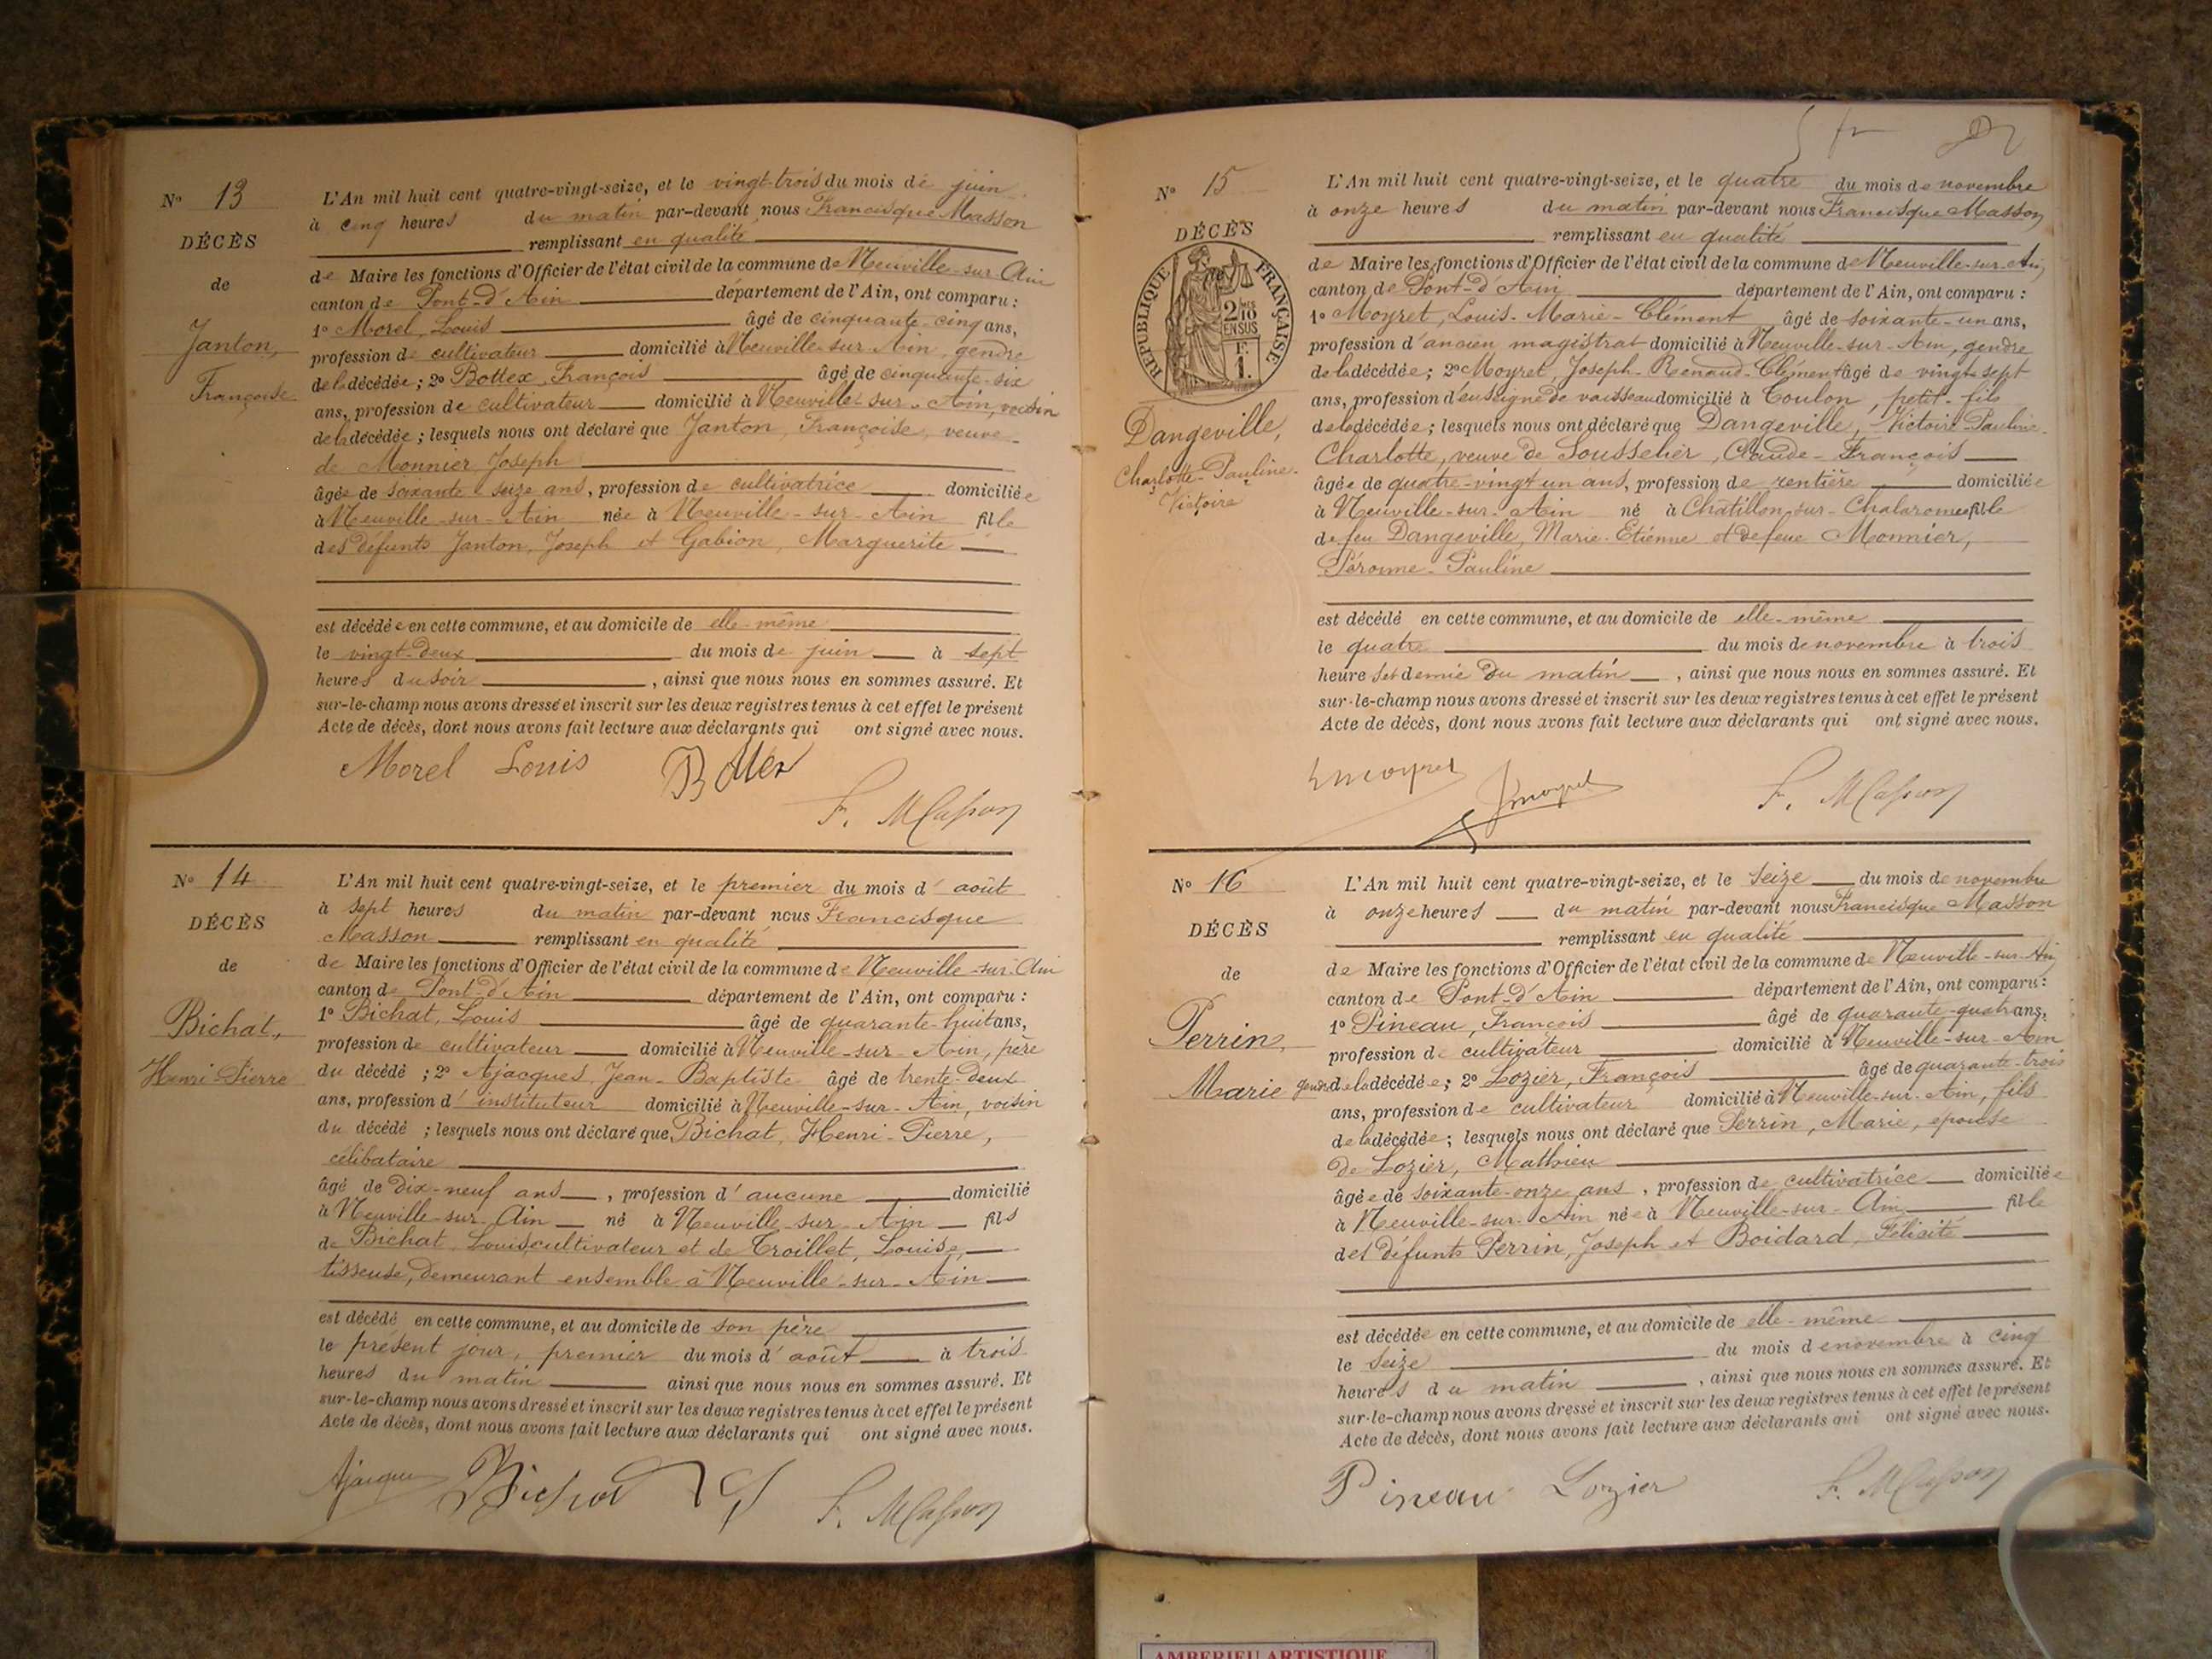 N° 13
DÉCÈS
de
Janton,
Françoise
L'An mil huit cent quatre-vingt-seize, et le vingt-trois du mois de juin
à cinq heures du matin par-devant nous Francisque Masson
remplissant en qualité
de Maire les fonctions d'Officier de l'état civil de la commune de Neuville-sur-Ain
canton de Pont-d'Ain département de l'Ain, ont comparu :
1° Morel, Louis âgé de cinquante-cinq ans,
profession de cultivateur domicilié à Neuville-sur-Ain, gendre
de la décédée ; 2° Bottex, François âgé de cinquante-six
ans, profession de cultivateur domicilié à Neuville-sur-Ain, voisin
de la décédée ; lesquels nous ont déclaré que Janton, Françoise, veuve
de Monnier Joseph
âgée de soixante-seize ans, profession de cultivatrice domiciliée
à Neuville-sur-Ain née à Neuville-sur-Ain fille
des défunts Janton, Joseph et Gabion, Marguerite
est décédée en cette commune, et au domicile de elle-même
le vingt-deux du mois de juin à sept
heures du soir, ainsi que nous nous en sommes assuré. Et
sur-le-champ nous avons dressé et inscrit sur les deux registres tenus à cet effet le présent
Acte de décès, dont nous avons fait lecture aux déclarants qui ont signé avec nous.
Morel Louis Bottex
F. Masson
N° 14
DÉCÈS
de
Bichat,
Henri-Pierre
L'An mil huit cent quatre-vingt-seize, et le premier du mois d'août
à sept heures du matin par-devant nous Francisque
Masson remplissant en qualité
de Maire les fonctions d'Officier de l'état civil de la commune de Neuville-sur-Ain
canton de Pont-d'Ain département de l'Ain, ont comparu :
1° Bichat, Louis âgé de quarante-huit ans,
profession de cultivateur domicilié à Neuville-sur-Ain, père
du décédé ; 2° Ajacques, Jean-Baptiste âgé de trente-deux
ans, profession d'instituteur domicilié à Neuville-sur-Ain, voisin
du décédé ; lesquels nous ont déclaré que Bichat, Henri-Pierre,
célibataire
âgé de dix-neuf ans, profession d'aucune domicilié
à Neuville-sur-Ain né à Neuville-sur-Ain fils
de Bichat, Louis cultivateur et de Troillet, Louise,
tisseuse, demeurant ensemble à Neuville-sur-Ain
est décédé en cette commune, et au domicile de son père
le présent jour, premier du mois d'août à trois
heures du matin ainsi que nous nous en sommes assuré. Et
sur-le-champ nous avons dressé et inscrit sur les deux registres tenus à cet effet le présent
Acte de décès, dont nous avons fait lecture aux déclarants qui ont signé avec nous.
Ajacques Bichat F. Masson
5 fr
N° 15
DÉCÈS
de
RÉPUBLIQUE FRANÇAISE
2/10 EN SUS
F.
1.
Dangeville,
Charlotte-Pauline-
Victoire
L'An mil huit cent quatre-vingt-seize, et le quatre du mois de novembre
à onze heures du matin par-devant nous Francisque Masson
remplissant en qualité
de Maire les fonctions d'Officier de l'état civil de la commune de Neuville-sur-Ain
canton de Pont-d'Ain département de l'Ain, ont comparu :
1° Moyret, Louis-Marie-Clément âgé de soixante-un ans,
profession d'ancien magistrat domicilié à Neuville-sur-Ain, gendre
de la décédée ; 2° Moyret, Joseph-Renaud-Clément âgé de vingt-sept
ans, profession d'enseigne de vaisseau domicilié à Toulon, petit-fils
de la décédée ; lesquels nous ont déclaré que Dangeville, Victoire-Pauline-
Charlotte, veuve de Sousselier, Claude-François
âgée de quatre-vingt un ans, profession de rentière domiciliée
à Neuville-sur-Ain né à Châtillon-sur-Chalaronne fille
de feu Dangeville, Marie-Etienne et de feue Monnier,
Péronne-Pauline
est décédé en cette commune, et au domicile de elle-même
le quatre du mois de novembre à trois
heures et demie du matin, ainsi que nous nous en sommes assuré. Et
sur-le-champ nous avons dressé et inscrit sur les deux registres tenus à cet effet le présent
Acte de décès, dont nous avons fait lecture aux déclarants qui ont signé avec nous.
L Moyret J Moyret F. Masson
N° 16
DÉCÈS
de
Perrin,
Marie
L'An mil huit cent quatre-vingt-seize, et le seize du mois de novembre
à onze heures du matin par-devant nous Francisque Masson
remplissant en qualité
de Maire les fonctions d'Officier de l'état civil de la commune de Neuville-sur-Ain
canton de Pont-d'Ain département de l'Ain, ont comparu :
1° Pineau, François âgé de quarante-quatre ans,
profession de cultivateur domicilié à Neuville-sur-Ain
gendre de la décédée ; 2° Lozier, François âgé de quarante-trois
ans, profession de cultivateur domicilié à Neuville-sur-Ain, fils
de la décédée ; lesquels nous ont déclaré que Perrin, Marie, épouse
de Lozier, Mathieu
âgée de soixante-onze ans, profession de cultivatrice domiciliée
à Neuville-sur-Ain née à Neuville-sur-Ain fille
des défunts Perrin, Joseph et Boidard, Félicité
est décédée en cette commune, et au domicile de elle-même
le seize du mois de novembre à cinq
heures du matin, ainsi que nous nous en sommes assuré. Et
sur-le-champ nous avons dressé et inscrit sur les deux registres tenus à cet effet le présent
Acte de décès, dont nous avons fait lecture aux déclarants qui ont signé avec nous.
Pineau Lozier F. Masson
AMBERIEU ARTISTIQUE